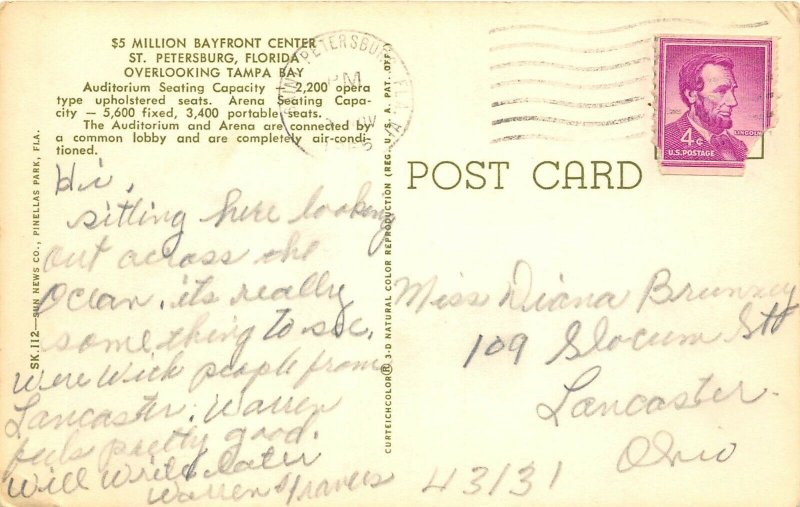 $5 MILLION BAYFRONT CENTER
ST. PETERSBURG, FLORIDA
OVERLOOKING TAMPA BAY
Auditorium Seating Capacity — 2,200 opera
type upholstered seats. Arena Seating Capa-
city — 5,600 fixed, 3,400 portable seats.
The Auditorium and Arena are connected by
a common lobby and are completely air-condi-
tioned.
Hi,
sitting here looking
out across the
Ocean, its really
something to see.
Were with people from
Lancaster. Warren
feels pretty good.
Will write later
Warren & Frances
SK.112—SUN NEWS CO., PINELLAS PARK, FLA.
CURTEICHCOLOR® 3-D NATURAL COLOR REPRODUCTION (REG. U. S. A. PAT. OFF.)
PETERSBURG, FL
PM
POST CARD
LINCOLN
4c
U.S. POSTAGE
Miss Diana
109 Slocum St
Lancaster.
Ohio
43131